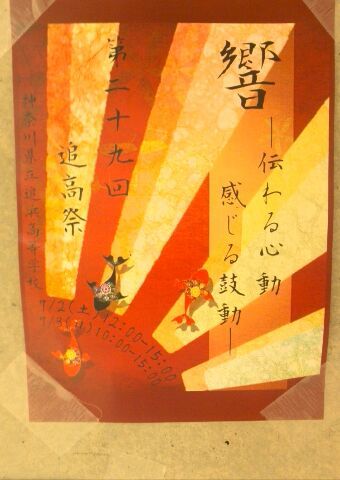 響
―伝わる心動
感じる鼓動―
第二十九回
追高祭
神奈川県立追浜高等学校
9/2(土)12:00-15:00
9/3(日)10:00-15:00